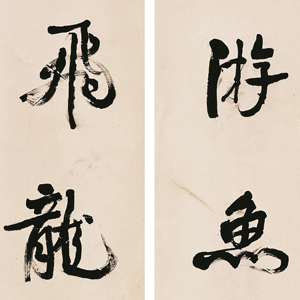 游魚
飛龍